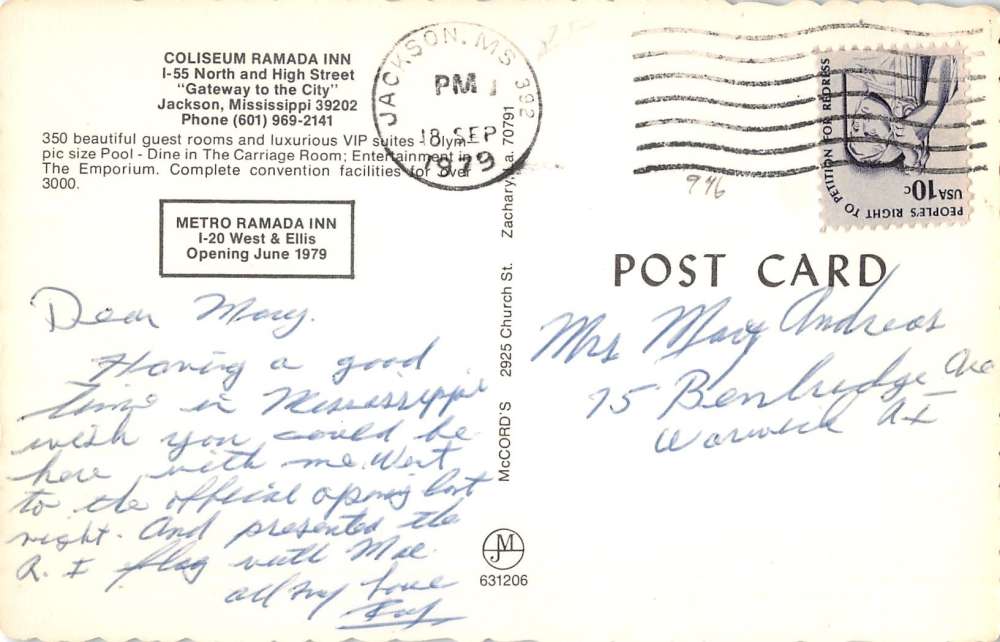 COLISEUM RAMADA INN
I-55 North and High Street
"Gateway to the City"
Jackson, Mississippi 39202
Phone (601) 969-2141
350 beautiful guest rooms and luxurious VIP suites - Olym
pic size Pool - Dine in The Carriage Room; Entertainment in
The Emporium. Complete convention facilities for over
3000.
METRO RAMADA INN
I-20 West & Ellis
Opening June 1979
Dear Mary.
Having a good
time in Mississippi
wish you could be
here with me. Went
to the official opening last
night. And presented the
R. I flag with Moe.
all my love
McCORD'S 2925 Church St. Zachary, La. 70791
JACKSON, MS 392
PM
18 SEP
1979
946
PEOPLE'S RIGHT TO PETITION FOR REDRESS
USA 10c
POST CARD
Mrs Mary Andreas
75 Ave
Warwick RI
JM
631206